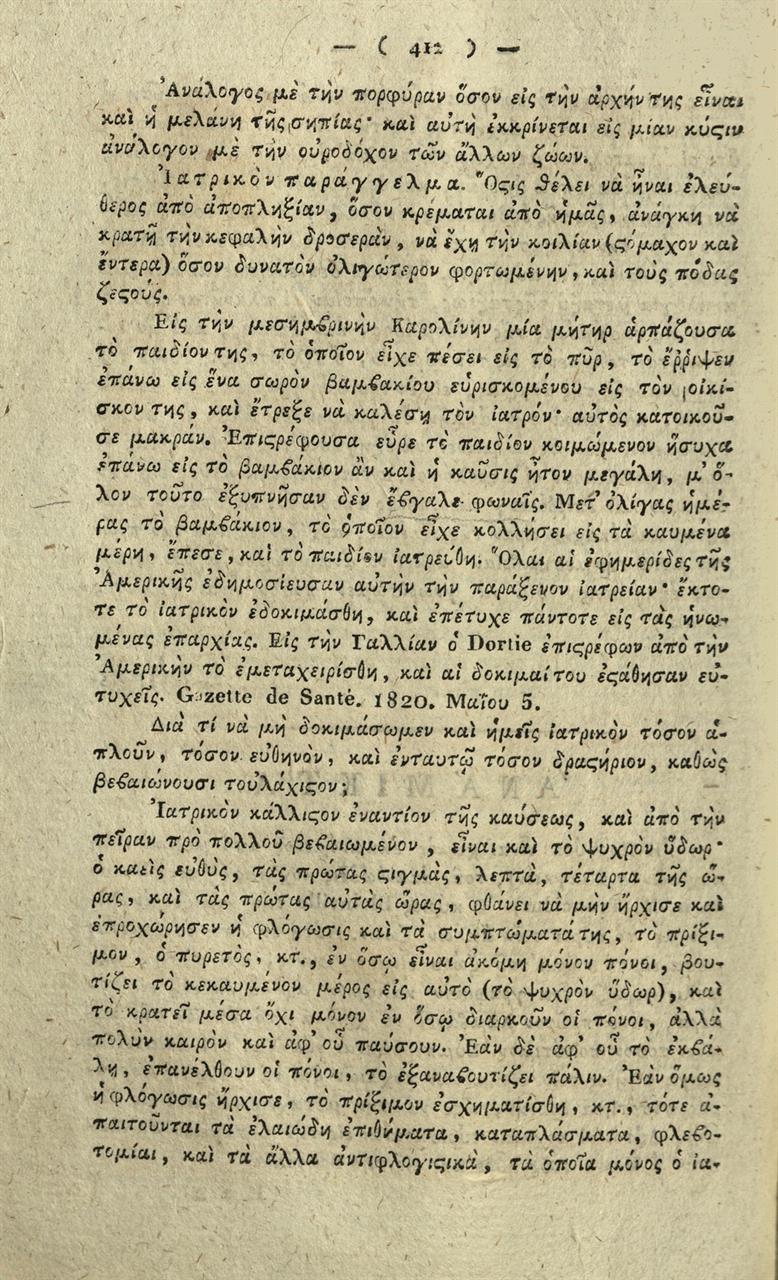 — ( 412 ) —
Ἀνάλογος μὲ τὴν πορφύραν ὅσον εἰς τὴν ἀρχήν της εἶναι
καὶ ἡ μελάνη τῆς σηπίας· καὶ αὐτὴ ἐκκρίνεται εἰς μίαν κύϛιν
ἀνάλογον μὲ τὴν οὐροδόχον τῶν ἄλλων ζώων.
Ἰατρικὸν παράγγελμα. Ὅϛις θέλει νὰ ἦναι ἐλεύ-
θερος ἀπὸ ἀποπληξίαν, ὅσον κρέμαται ἀπὸ ἡμᾶς, ἀνάγκη νὰ
κρατῇ τὴν κεφαλὴν δροσεράν, νὰ ἔχῃ τὴν κοιλίαν (ϛόμαχον καὶ
ἔντερα) ὅσον δυνατὸν ὀλιγώτερον φορτωμένην, καὶ τοὺς πόδας
ζεϛούς.
Εἰς τὴν μεσημβρινὴν Καρολίνην μία μήτηρ ἁρπάζουσα
τὸ παιδίον της, τὸ ὁποῖον εἶχε πέσει εἰς τὸ πῦρ, τὸ ἔῤῥιψεν
ἐπάνω εἰς ἕνα σωρὸν βαμβακίου εὑρισκομένου εἰς τὸν οἰκί-
σκον της, καὶ ἔτρεξε νὰ καλέσῃ τὸν ἰατρόν· αὐτὸς κατοικοῦ-
σε μακράν. Ἐπιϛρέφουσα εὗρε τὸ παιδίον κοιμώμενον ἥσυχα
ἐπάνω εἰς τὸ βαμβάκιον ἂν καὶ ἡ καῦσις ἦτον μεγάλη, μ' ὅ-
λον τοῦτο ἐξυπνῆσαν δὲν ἔβγαλε φωναῖς. Μετ' ὀλίγας ἡμέ-
ρας τὸ βαμβάκιον, τὸ ὁποῖον εἶχε κολλήσει εἰς τὰ καυμένα
μέρη, ἔπεσε, καὶ τὸ παιδίον ἰατρεύθη. Ὅλαι αἱ ἐφημερίδες τῆς
Ἀμερικῆς ἐδημοσίευσαν αὐτὴν τὴν παράξενον ἰατρείαν· ἔκτο-
τε τὸ ἰατρικὸν ἐδοκιμάσθη, καὶ ἐπέτυχε πάντοτε εἰς τὰς ἡνω-
μένας ἐπαρχίας. Εἰς τὴν Γαλλίαν ὁ Dortie ἐπιϛρέφων ἀπὸ τὴν
Ἀμερικὴν τὸ ἐμεταχειρίσθη, καὶ αἱ δοκιμαί του ἐϛάθησαν εὐ-
τυχεῖς. Gazette de Santé. 1820. Μαΐου 5.
Διὰ τί νὰ μὴ δοκιμάσωμεν καὶ ἡμεῖς ἰατρικὸν τόσον ἁ-
πλοῦν, τόσον εὐθηνὸν, καὶ ἐνταυτῷ τόσον δραϛήριον, καθὼς
βεβαιώνουσι τοὐλάχιϛον;
Ἰατρικὸν κάλλιϛον ἐναντίον τῆς καύσεως, καὶ ἀπὸ τὴν
πεῖραν πρὸ πολλοῦ βεβαιωμένον, εἶναι καὶ τὸ ψυχρὸν ὕδωρ·
ὁ καεὶς εὐθὺς, τὰς πρώτας ϛιγμὰς, λεπτὰ, τέταρτα τῆς ὥ-
ρας, καὶ τὰς πρώτας αὐτὰς ὥρας, φθάνει νὰ μὴν ἤρχισε καὶ
ἐπροχώρησεν ἡ φλόγωσις καὶ τὰ συμπτώματά της, τὸ πρίξι-
μον, ὁ πυρετὸς, κτ., ἐν ὅσῳ εἶναι ἀκόμη μόνον πόνοι, βου-
τίζει τὸ κεκαυμένον μέρος εἰς αὐτὸ (τὸ ψυχρὸν ὕδωρ), καὶ
τὸ κρατεῖ μέσα ὄχι μόνον ἐν ὅσῳ διαρκοῦν οἱ πόνοι, ἀλλὰ
πολὺν καιρὸν καὶ ἀφ' οὗ παύσουν. Ἐὰν δὲ ἀφ' οὗ τὸ ἐκβά-
λῃ, ἐπανέλθουν οἱ πόνοι, τὸ ἐξαναβουτίζει πάλιν. Ἐὰν ὅμως
ἡ φλόγωσις ἤρχισε, τὸ πρίξιμον ἐσχηματίσθη, κτ., τότε ἀ-
παιτοῦνται τὰ ἐλαιώδη ἐπιθήματα, καταπλάσματα, φλεβο-
τομίαι, καὶ τὰ ἄλλα ἀντιφλογιϛικὰ, τὰ ὁποῖα μόνος ὁ ἰα-